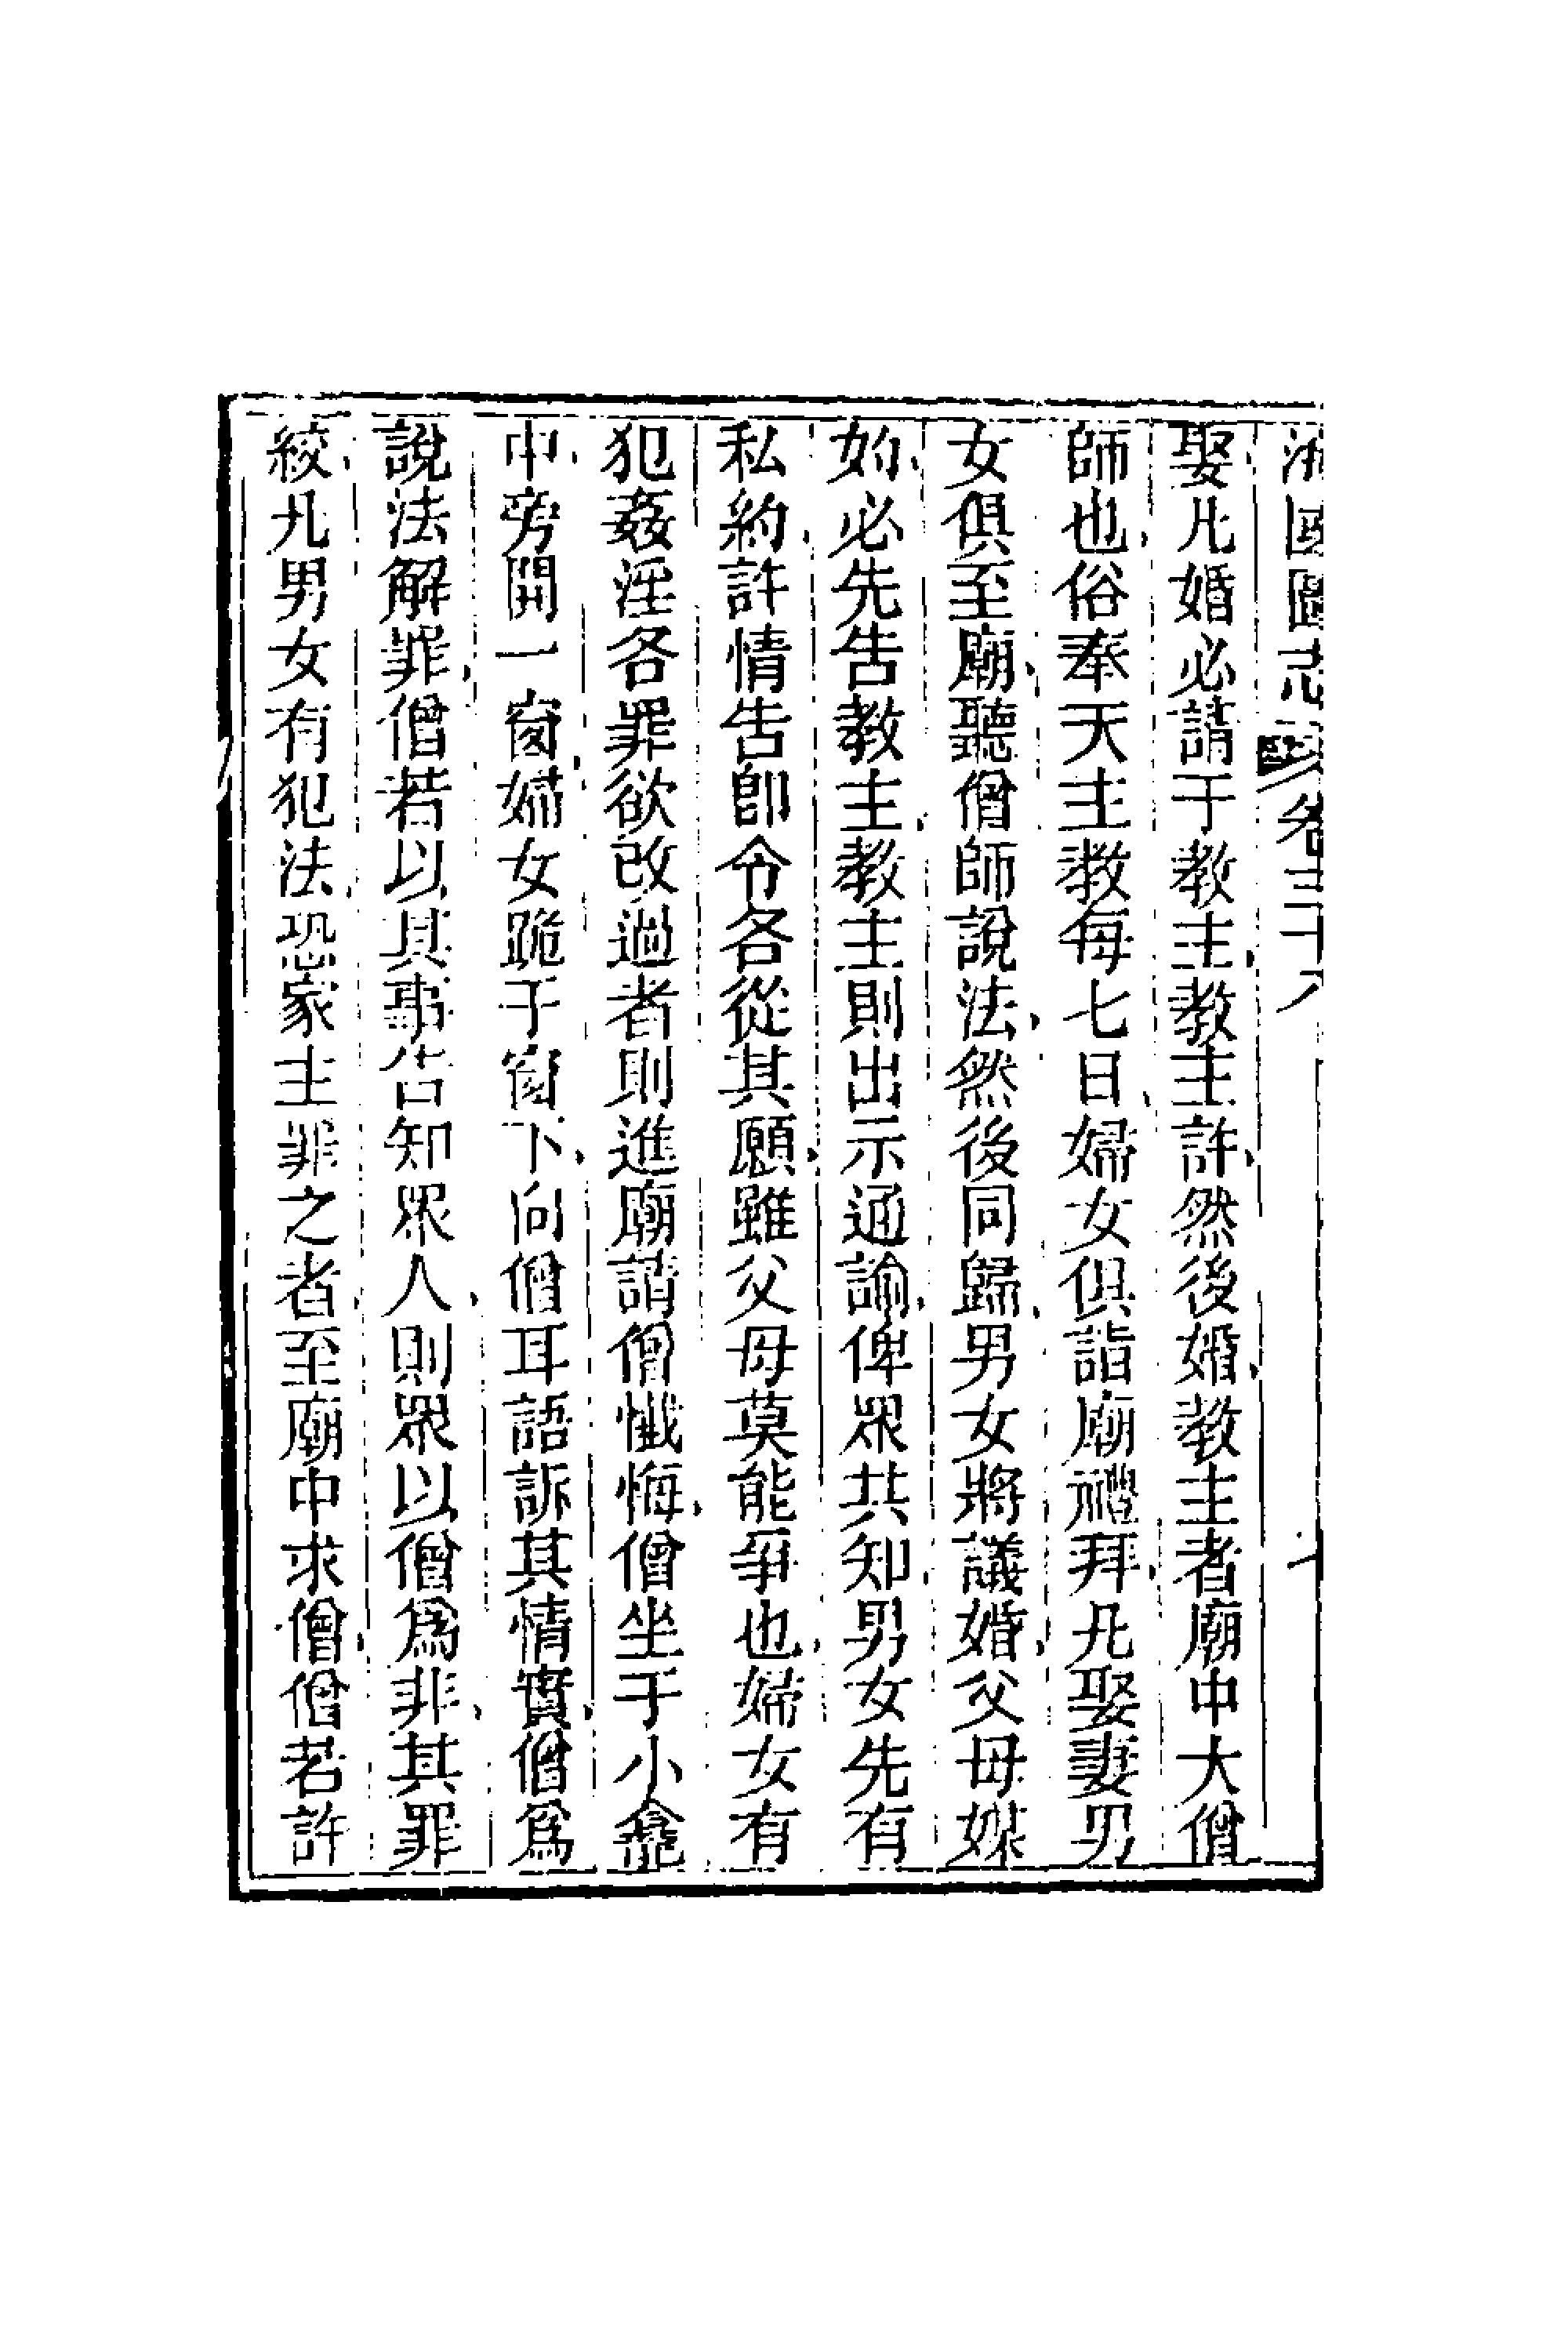 海國圖志 卷三十八 十
娶凡婚必請于教主教主許然後婚教主者廟中大僧
師也俗奉天主教每七日婦女俱詣廟禮拜凡娶妻男
女俱至廟聽僧師說法然後同歸男女將議婚父母媒
妁必先告教主教主則出示通諭俾眾共知男女先有
私約許情告卽令各從其願雖父母莫能爭也婦女有
犯姦淫各罪欲改過者則進廟請僧懺悔僧坐于小龕
中旁開一窗婦女跪于窗下向僧耳語訴其情實僧爲
說法解罪僧若以其事告知眾人則眾以僧爲非其罪
絞凡男女有犯法恐家主罪之者至廟中求僧僧若許